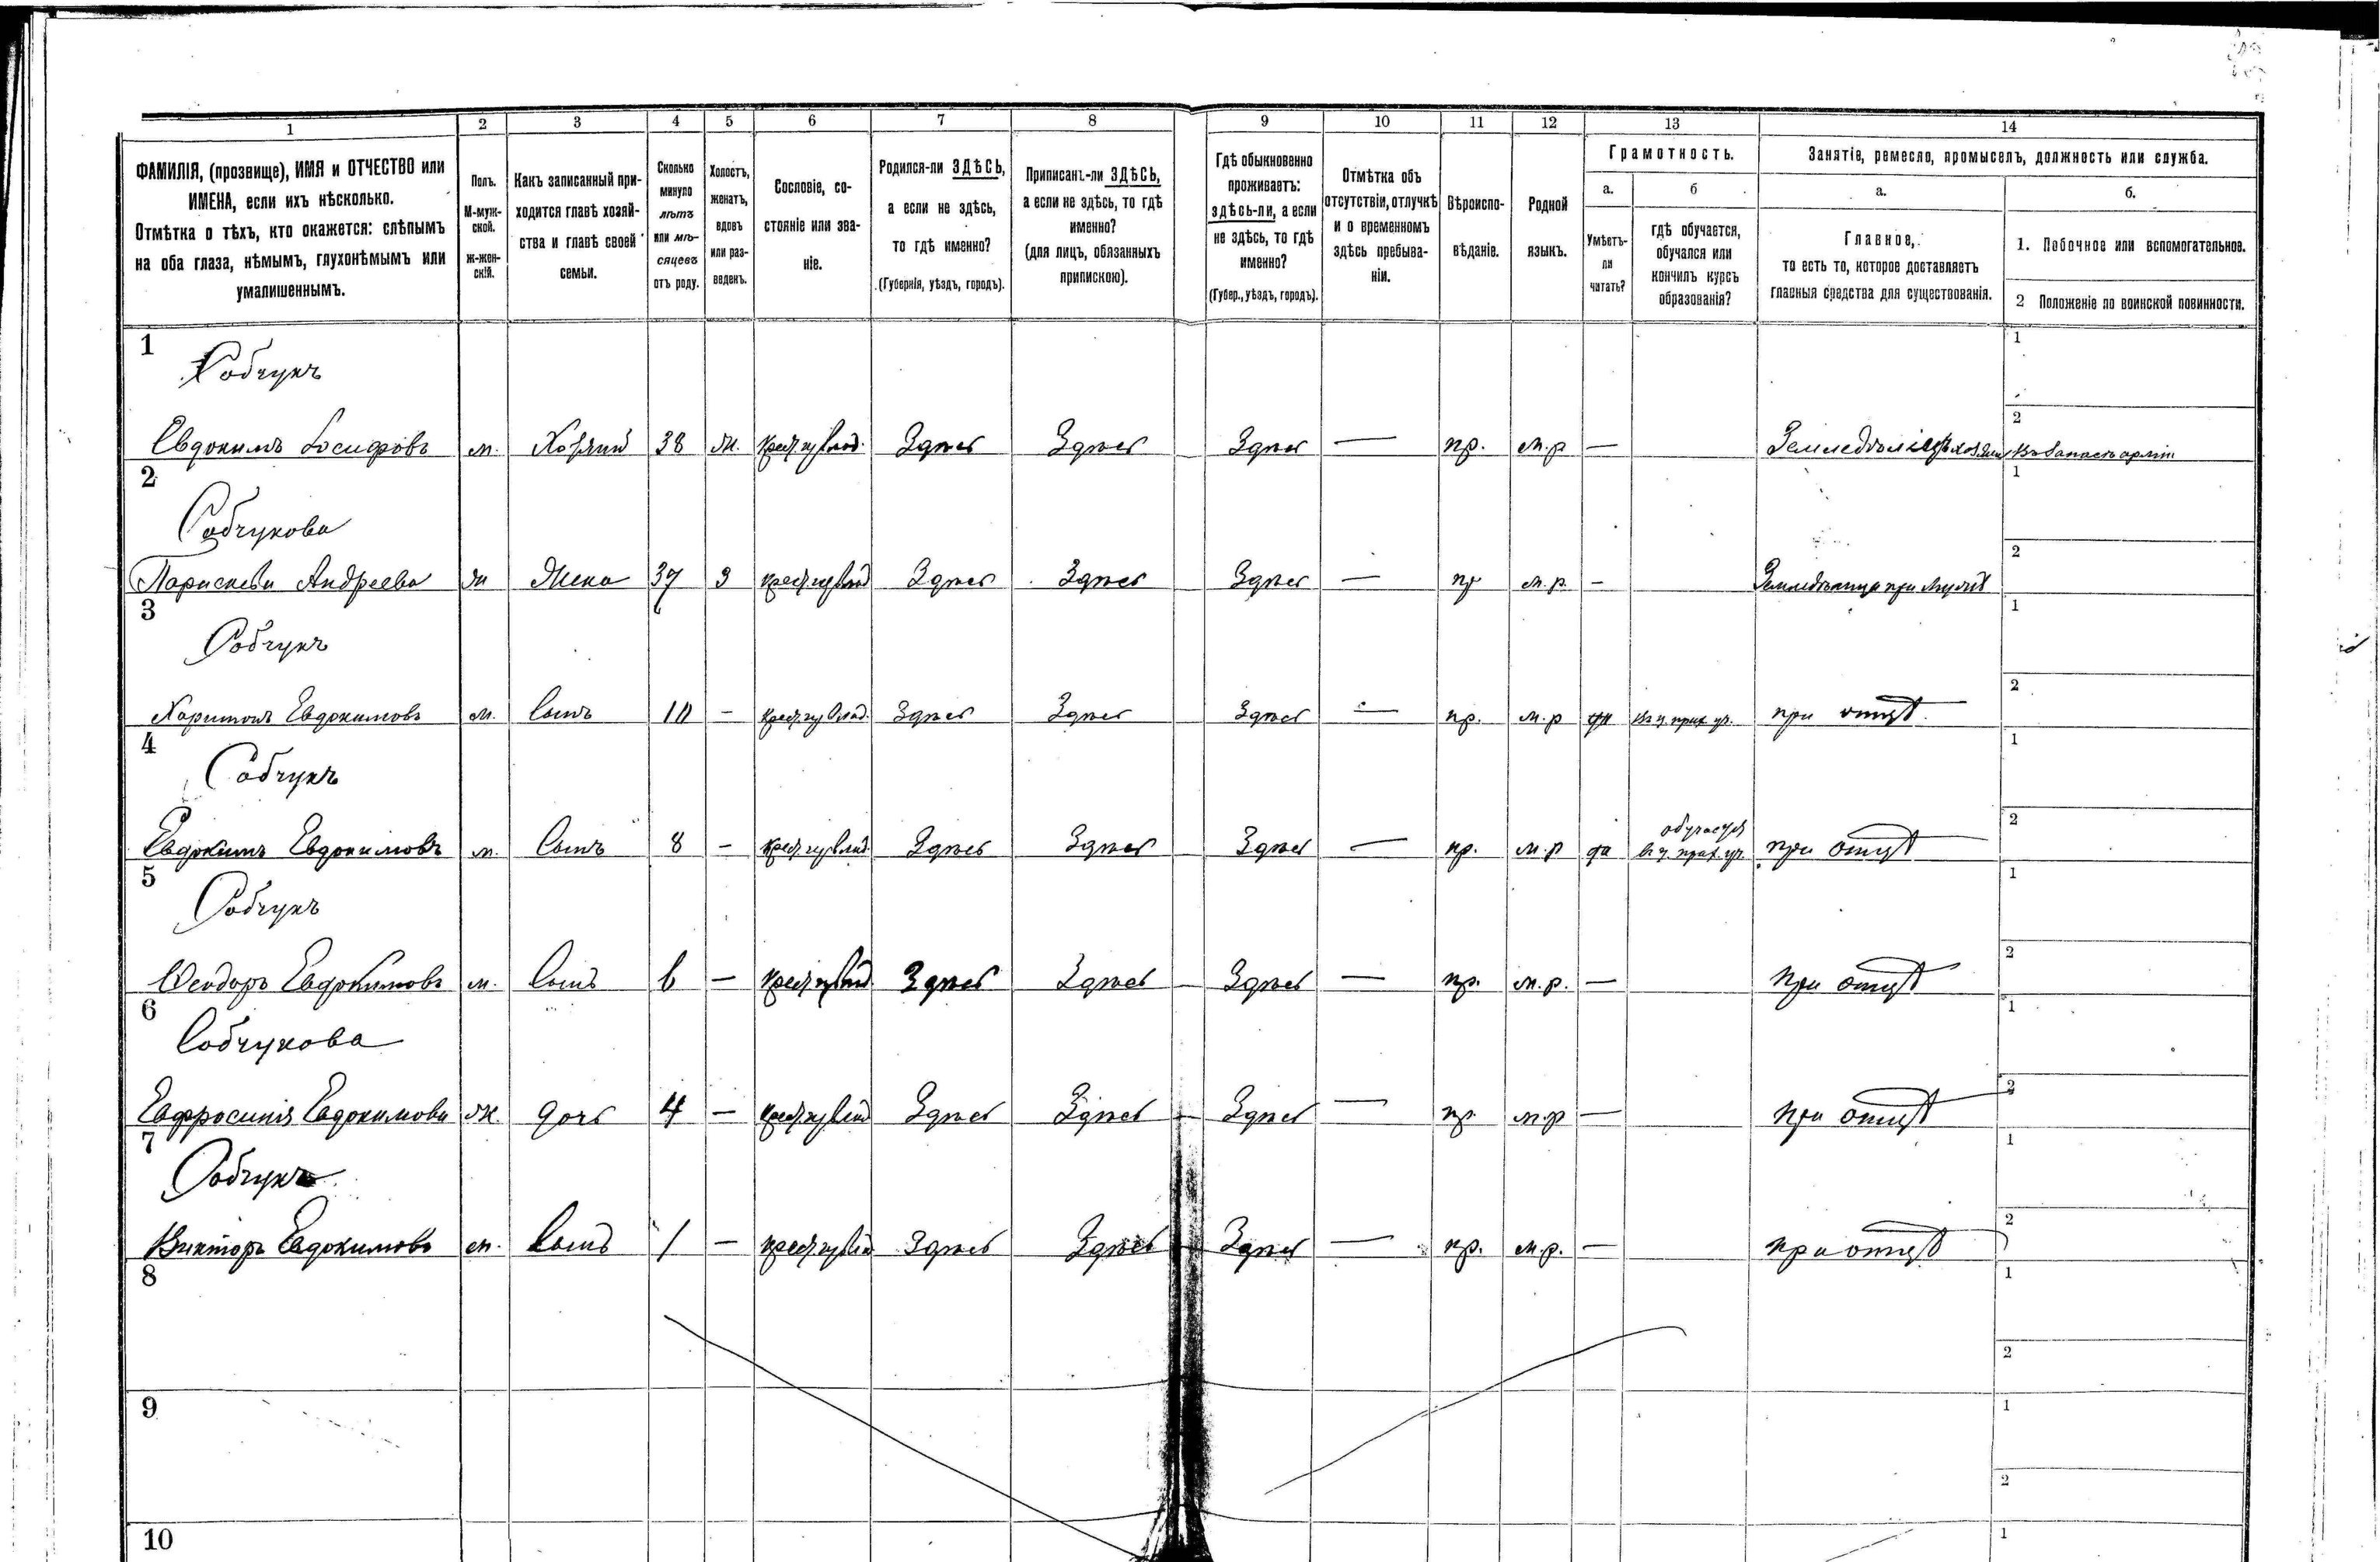 1 2 3 4 5 6 7 8 9 10 11 12 13 14
ФАМИЛІЯ, (прозвище), ИМЯ и ОТЧЕСТВО или
ИМЕНА, если ихъ нѣсколько.
Отмѣтка о тѣхъ, кто окажется: слѣпымъ
на оба глаза, нѣмымъ, глухонѣмымъ или
умалишеннымъ.
Полъ.
М-муж-
ской.
ж-жен-
скій.
Какъ записанный при-
ходится главѣ хозяй-
ства и главѣ своей
семьи.
Сколько
минуло
лѣтъ
или мѣ-
сяцевъ
отъ роду.
Холостъ,
женатъ,
вдовъ
или раз-
веденъ.
Сословіе, со-
стояніе или зва-
ніе.
Родился-ли ЗДѢСЬ,
а если не здѣсь,
то гдѣ именно?
(Губернія, уѣздъ, городъ).
Приписанъ-ли ЗДѢСЬ,
а если не здѣсь, то гдѣ
именно?
(для лицъ, обязанныхъ
припискою).
Гдѣ обыкновенно
проживаетъ:
здѣсь-ли, а если
не здѣсь, то гдѣ
именно?
(Губер., уѣздъ, городъ).
Отмѣтка объ
отсутствіи, отлучкѣ
и о временномъ
здѣсь пребыва-
ніи.
Вѣроиспо-
вѣданіе.
Родной
языкъ.
Грамотность.
а.
Умѣетъ-
ли
читать?
б
гдѣ обучается,
обучался или
кончилъ курсъ
образованія?
Занятіе, ремесло, промыселъ, должность или служба.
а.
Главное,
то есть то, которое доставляетъ
главныя средства для существованія.
б.
1. Побочное или вспомогательное.
2 Положеніе по воинской повинности.
1 1
Собчукъ
2
Евдокимъ Іосифовъ м. Хозяинъ 38 ж. Здѣсь Здѣсь Здѣсь — пр. м.р — Въ запасѣ арміи
2 1
Собчукова
2
Параскева Андреева ж Жена 37 З Здѣсь Здѣсь Здѣсь — пр м.р. —
3 1
Собчукъ
2
Харитонъ Евдокимовъ м. Сынъ 10 — Здѣсь Здѣсь Здѣсь — пр. м.р да въ ц. прих. уч. при отцѣ
4 1
Собчукъ
обучается 2
Евдокимъ Евдокимовъ м. Сынъ 8 — Здѣсь Здѣсь Здѣсь — пр. м.р да въ ц. прих. уч. при отцѣ
5 1
Собчукъ
2
Ѳеодоръ Евдокимовъ м. Сынъ 6 — Здѣсь Здѣсь Здѣсь — пр. м.р. — при отцѣ
6 1
Собчукова
2
Евфросинія Евдокимова ж. дочь 4 — Здѣсь Здѣсь Здѣсь — пр. м.р — при отцѣ
7 1
Собчукъ
2
Викторъ Евдокимовъ м. Сынъ 1 — Здѣсь Здѣсь Здѣсь — пр. м.р. — при отцѣ
8 1
2
9 1
2
10 1